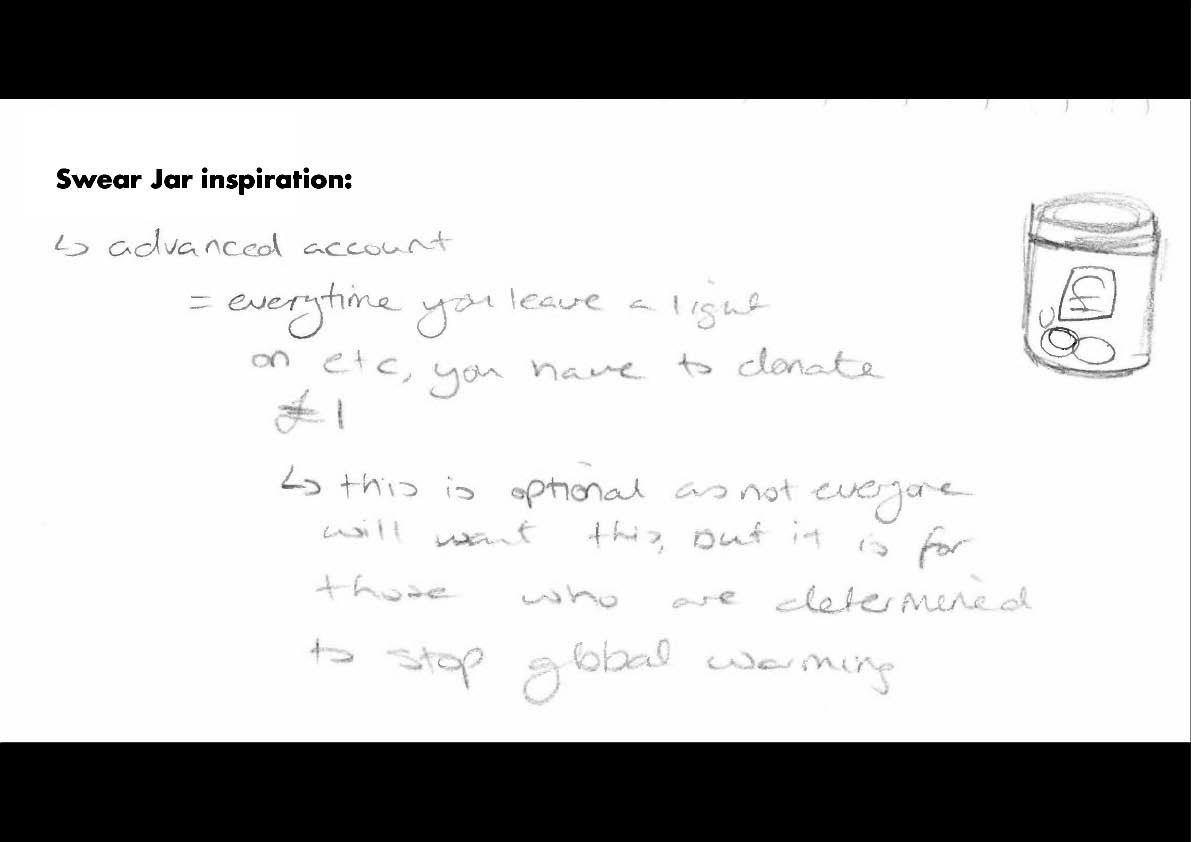 Swear Jar inspiration:
↳ advanced account
= everytime you leave a light
on etc, you have to donate
£1
↳ this is optional as not everyone
will want this, but it is for
those who are determined
to stop global warming